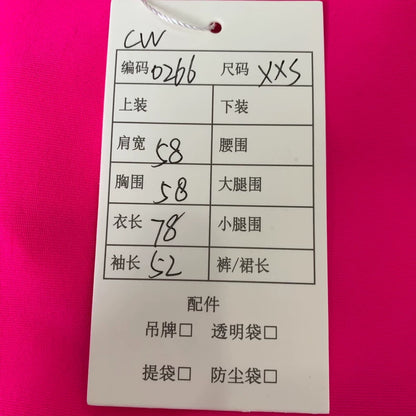 CW
编码 0266 尺码 XXS
上装 下装
肩宽 58 腰围
胸围 58 大腿围
衣长 78 小腿围
袖长 52 裤/裙长
配件
吊牌□ 透明袋□
提袋□ 防尘袋□